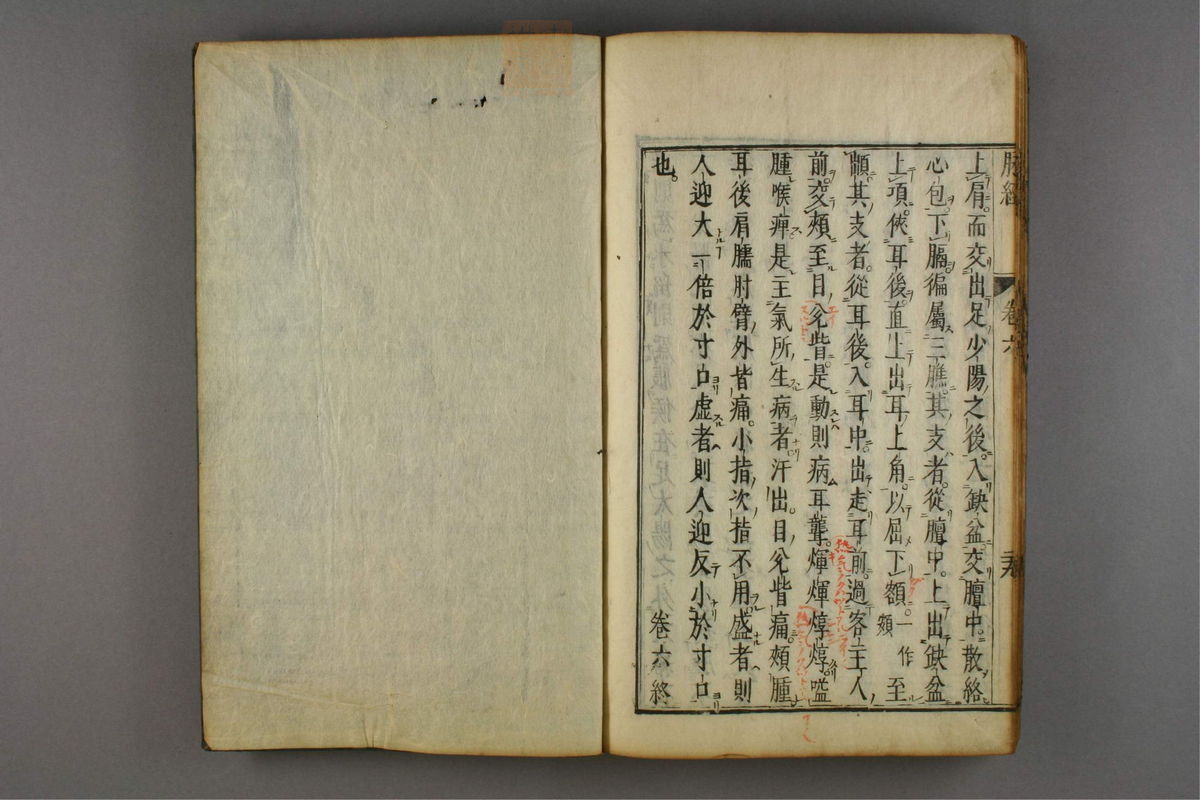 脉經 卷六
上肩而交出足少陽之後入缺盆交膻中散絡
心包下膈徧屬三膲其支者從膻中上出缺盆
上項俠耳後直上出耳上角以屈下額一作頰至
顴其支者從耳後入耳中出走耳前過客主人
前交頰至目兊眥是動則病耳聾煇煇焞焞嗌
腫喉痺是主氣所生病者汗出目兊眥痛頰腫
耳後肩臑肘臂外皆痛小指次指不用盛者則
人迎大一倍於寸口虛者則人迎反小於寸口
也 卷六終